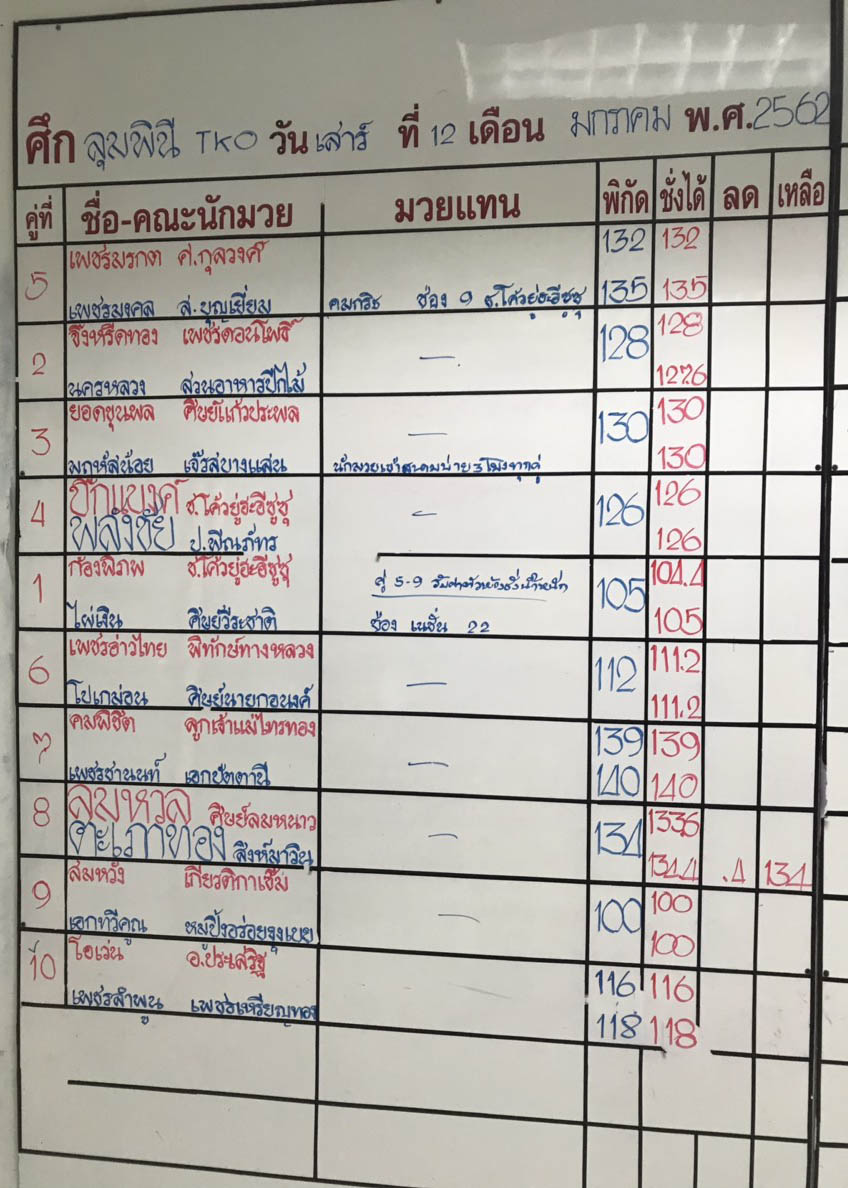 ศึก ลุมพินี TKO วัน เสาร์ ที่ 12 เดือน มกราคม พ.ศ. 2562
คู่ที่ ชื่อ-คณะนักมวย มวยแทน พิกัด ชั่งได้ ลด เหลือ
5 เพชรมรกต ศ.กุลวงศ์ 132 132
เพชรมงคล ส.บุญเยี่ยม คมกริช ช่อง 9 ช.โค้วยู่ฮะอีซูซุ 135 135
2 จิงหรีดทอง เพชรดอนโพธิ์ — 128 128
นครหลวง สวนอาหารปีกไม้ 127.6
3 ยอดขุนพล ศิษย์แก้วประพล — 130 130
มฤหัสน้อย เจ๊รสบางแสน 130
4 บิ๊กแบงค์ ช.โค้วยู่ฮะอีซูซุ — 126 126
พลังชัย ป.พีณภัทร 126
1 ก้องพิภพ ช.โค้วยู่ฮะอีซูซุ คู่ 5-9 105 104.4
ไผ่เงิน ศิษย์วีระชาติ ช่อง เนชั่น 22 105
6 เพชรอ่าวไทย พิทักษ์ทางหลวง — 112 111.2
โปเกม่อน ศิษย์นายกอนงค์ 111.2
7 คมพิชิต ลูกเจ้าแม่ไทรทอง — 139 139
เพชรชานนท์ เอกปัตตานี 140 140
8 ลมหวล ศิษย์ลมหนาว — 134 133.6
ตะเภาทอง สิงห์มาวิน 134.4 .4 134
9 สมหวัง เกียรติกาเซ็ม — 100 100
เอกทวีคูณ หมูปิ้งอร่อยจุงเบย 100
10 โอเว่น อ.ประเสริฐ 116 116
เพชรลำพูน เพชรเหรียญทอง 118 118